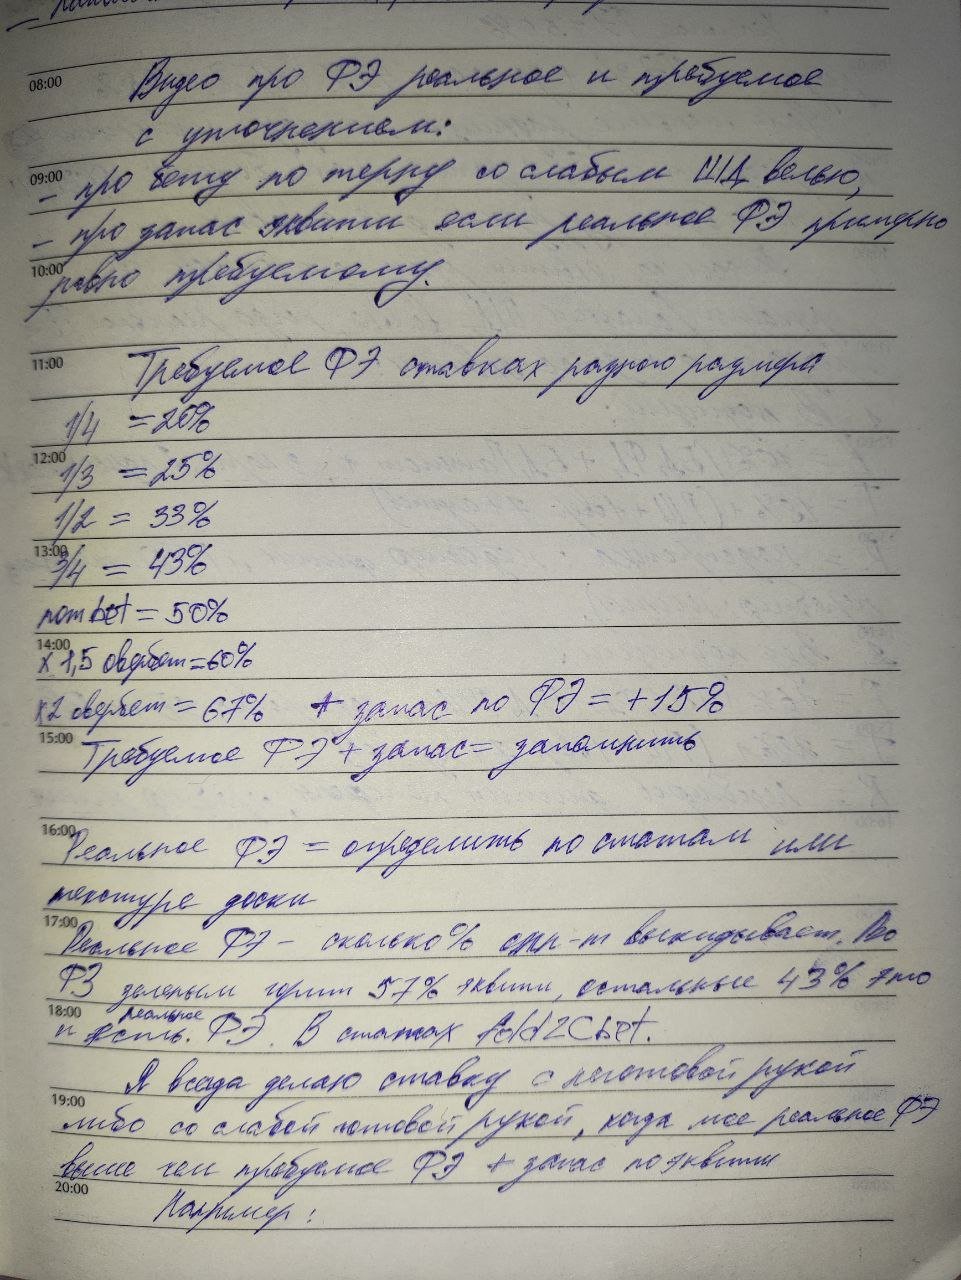 08:00 Видео про ФЭ реальное и требуемое
с уточнением:
09:00 – про по терну со слабым ШД велью,
– про запас эквити если реальное ФЭ примерно
10:00 равно требуемому.
11:00 Требуемое ФЭ ставках разного размера
1/4 = 20%
12:00 1/3 = 25%
1/2 = 33%
13:00 3/4 = 43%
пот bet = 50%
14:00 x 1,5 овербет = 60%
x2 овербет = 67% + запас по ФЭ = +15%
15:00 Требуемое ФЭ + запас = запомнить
16:00 Реальное ФЭ = определить по статам или
текстуре доски
17:00 Реальное ФЭ – сколько % опп-т выкидывает. Во
ФЗ зеленым горит 57% эквити, остальные 43% это
18:00 и есть реальное ФЭ. В статах Fold2Cbet.
Я всегда делаю ставку с неготовой рукой
19:00 либо со слабой готовой рукой, когда мое реальное ФЭ
выше чем требуемое ФЭ + запас по эквити
20:00 Например: